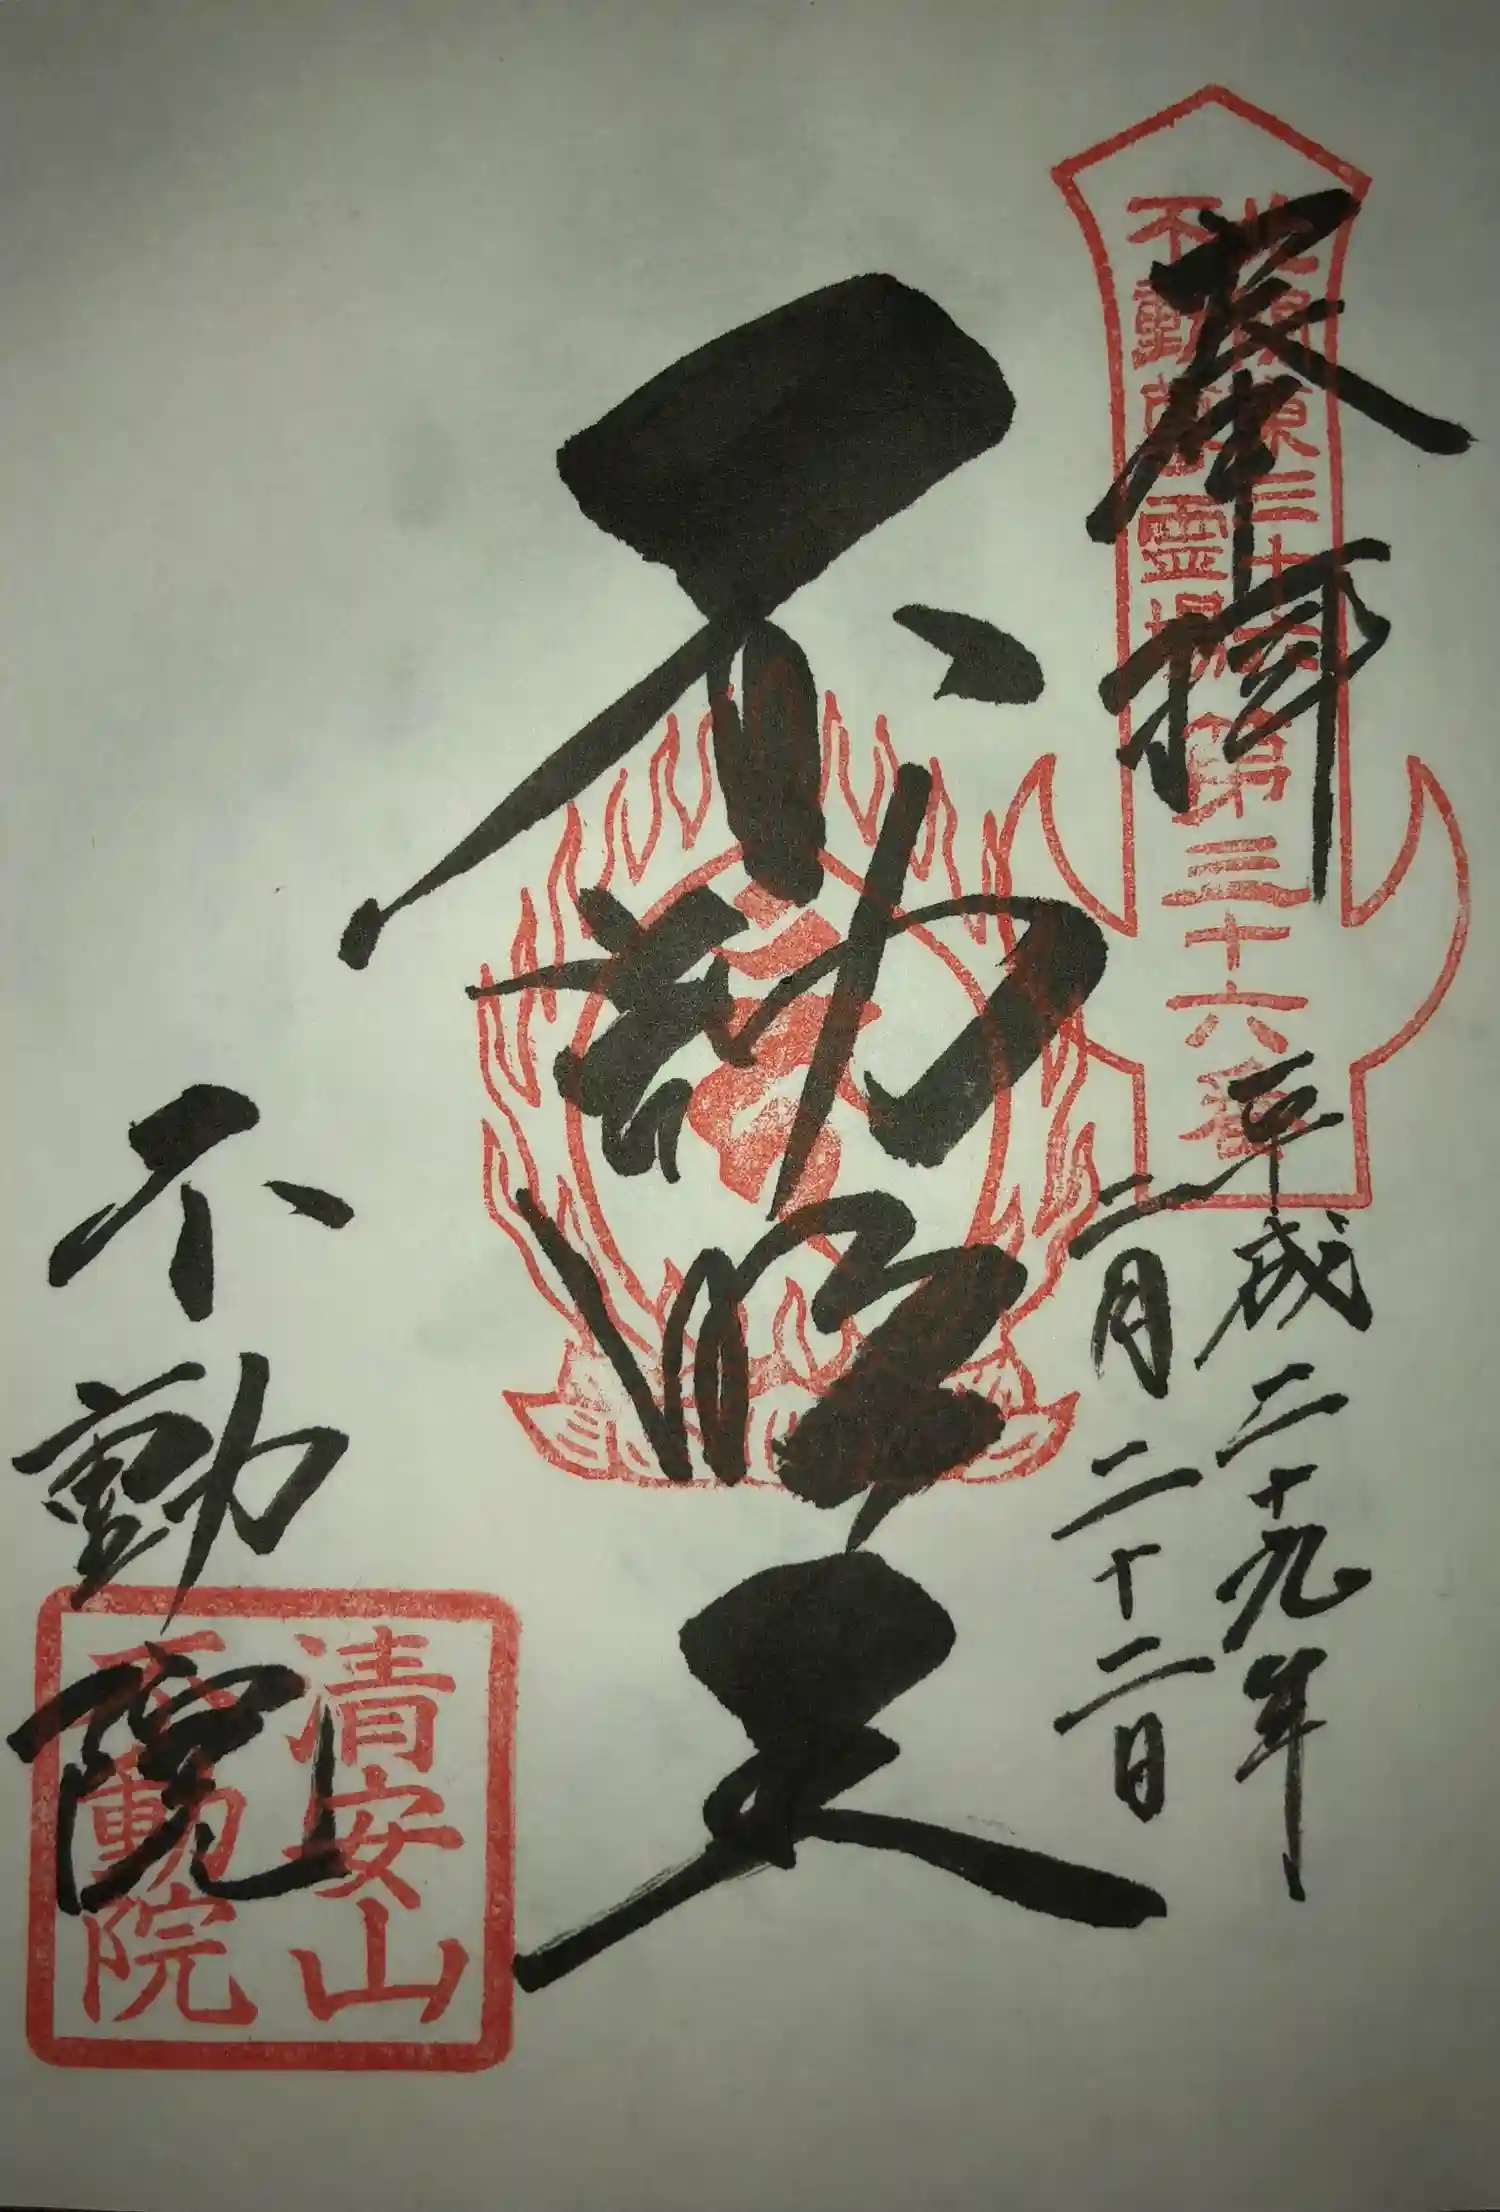 奉拝
北関東三十六
不動尊霊場
第三十六番
平成二十九年
二月二十二日
不動明王
不動院
清安山
不動院